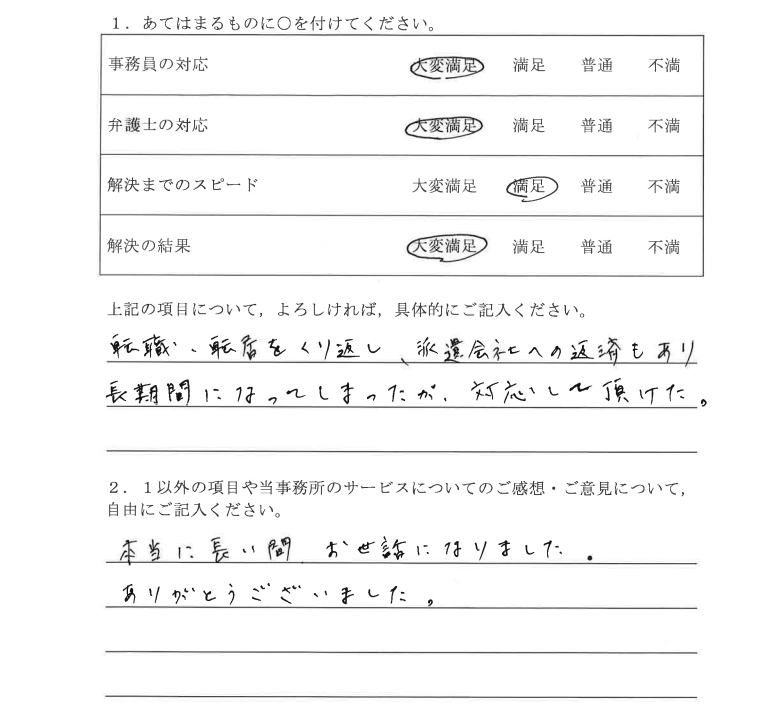 １．あてはまるものに○を付けてください。
事務員の対応 大変満足 満足 普通 不満
弁護士の対応 大変満足 満足 普通 不満
解決までのスピード 大変満足 満足 普通 不満
解決の結果 大変満足 満足 普通 不満
上記の項目について，よろしければ，具体的にご記入ください。
転職、転居をくり返し、派遣会社への返済もあり
長期間になってしまったが、対応して頂けた。
２．１以外の項目や当事務所のサービスについてのご感想・ご意見について，
自由にご記入ください。
本当に長い間、お世話になりました。
ありがとうございました。